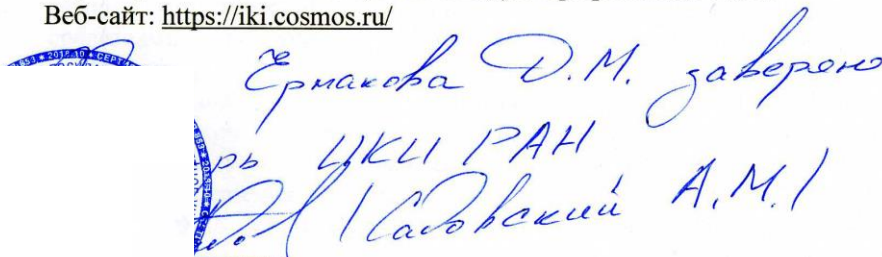 Веб-сайт: https://iki.cosmos.ru/
Ермакова Д.М. заверено
рь ИКИ РАН
/Садовский А.М./